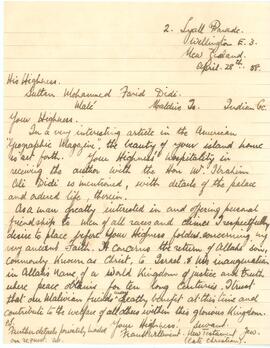 2. Lyall Parade.
Wellington E. 3.
New Zealand.
April. 28th. 58.
His Highness.
Sultan Mohammed Farid Didi.
Malé Maldive Is. Indian Oc.
Your Highness.
In a very interesting article in the American
"Geographic Magazine", the beauty of your island home
is set forth. Your Highness' hospitality in
receiving the author with the Hon. Mr. Ibrahim
Ali Didi is mentioned, with details of the palace
and ordered life, therein.
As a man greatly interested in and offering personal
friendship to men of all races and I respectfully
desire to place before Your Highness folders concerning my
very ancient Faith. It concerns the return of Allah's Son,
commonly known as Christ, to Israel. & His inauguration
in Allah's name of a World Kingdom of justice and truth,
where peace obtains for ten long centuries. I trust
that our Maldivian friends greatly benefit at this time and
contribute to the welfare of all others within this glorious Kingdom.
Your Highness,
Further details privately mailed
on request.
New Testament Jew.